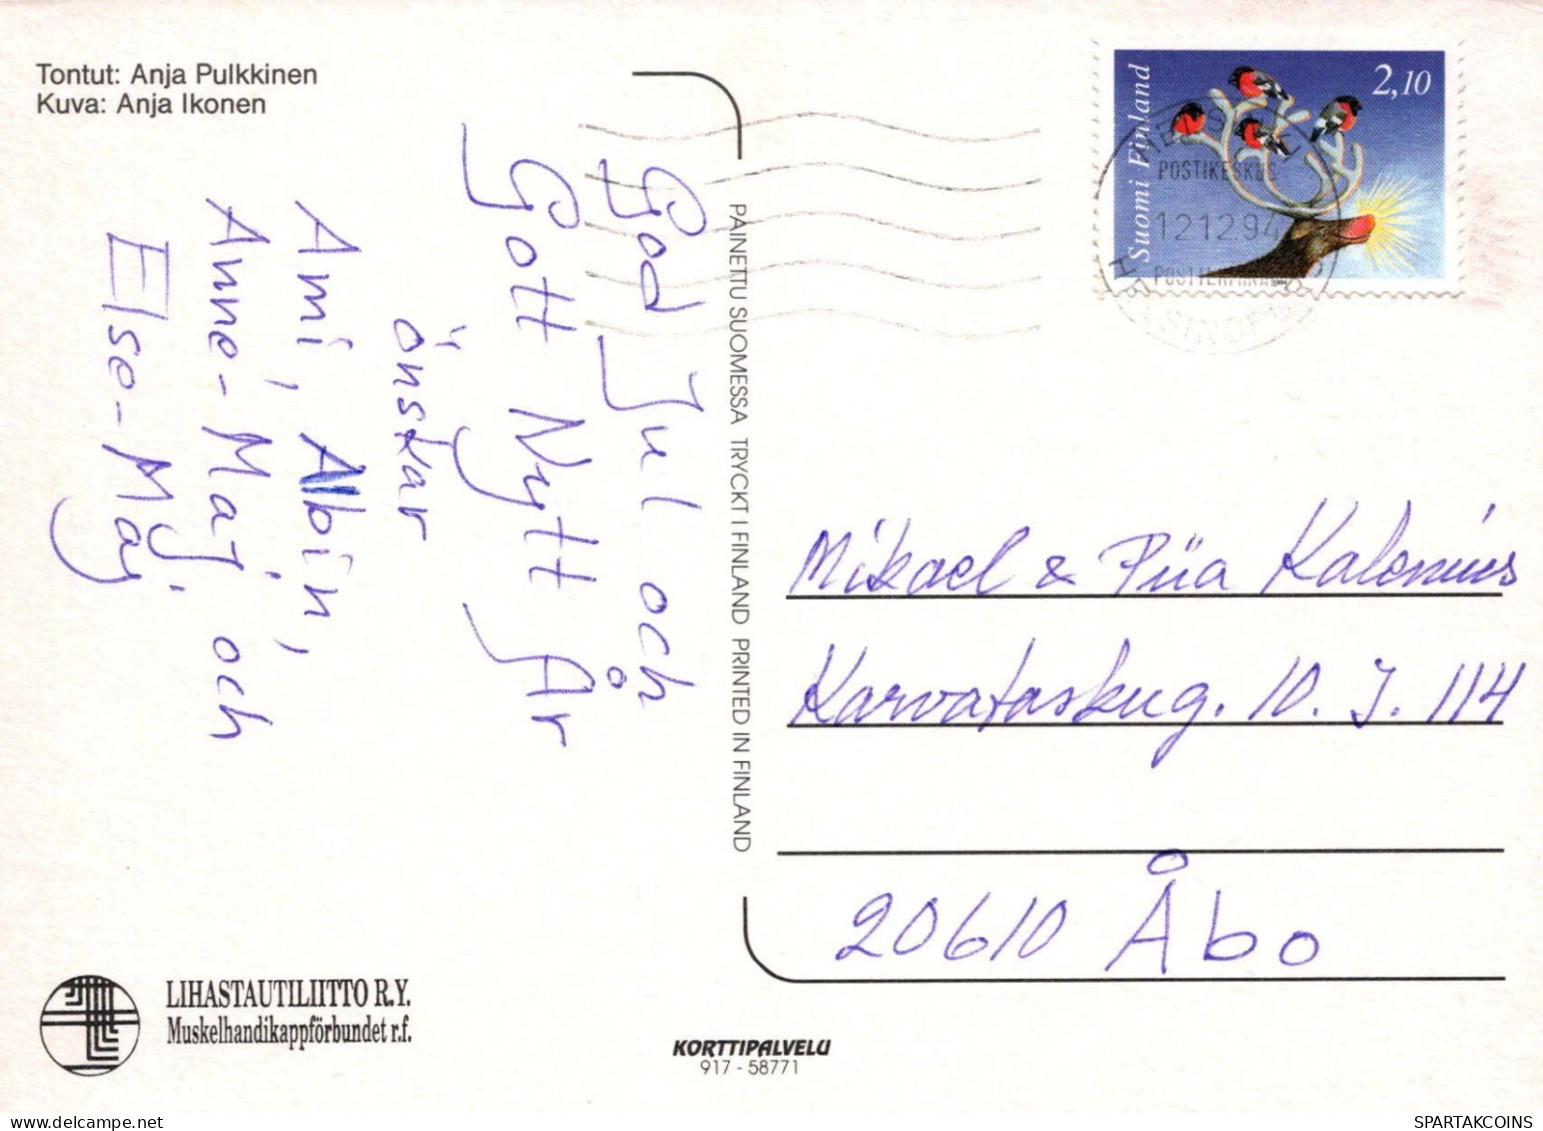 Tontut: Anja Pulkkinen
Kuva: Anja Ikonen
God Jul och
Gott Nytt År
önskar
Ami, Albin,
Anne-Maj, och
Else-Maj.
PAINETTU SUOMESSA TRYCKT I FINLAND PRINTED IN FINLAND
Suomi Finland
2,10
POSTIKESKUS
12.12.94
HELSINGFORS
Mikael & Piia Kalenius
Karvataskug. 10. J. 114
20610 Åbo
LIHASTAUTILIITTO R.Y.
Muskelhandikappförbundet r.f.
KORTTIPALVELU
917 - 58771
SPARTAKCOINS